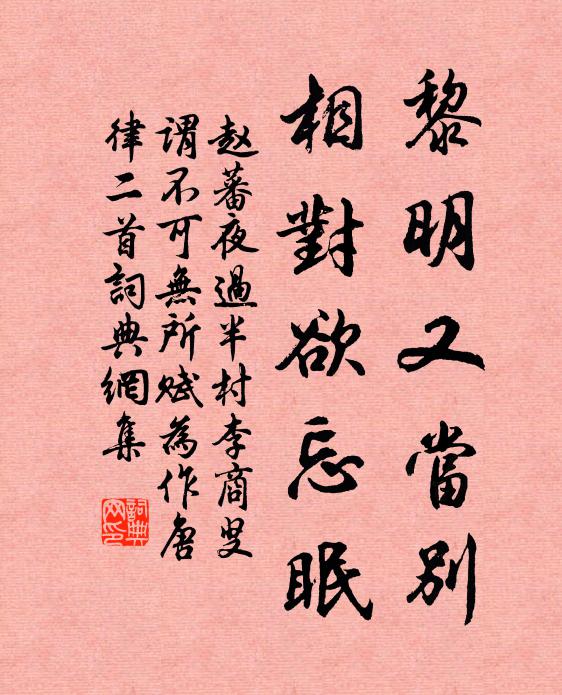 黎明又當別
相對欲忘眠
赵蕃夜過半村李商叟
謂不可無所賦為作唐
律二首詞典網集
詞典网印